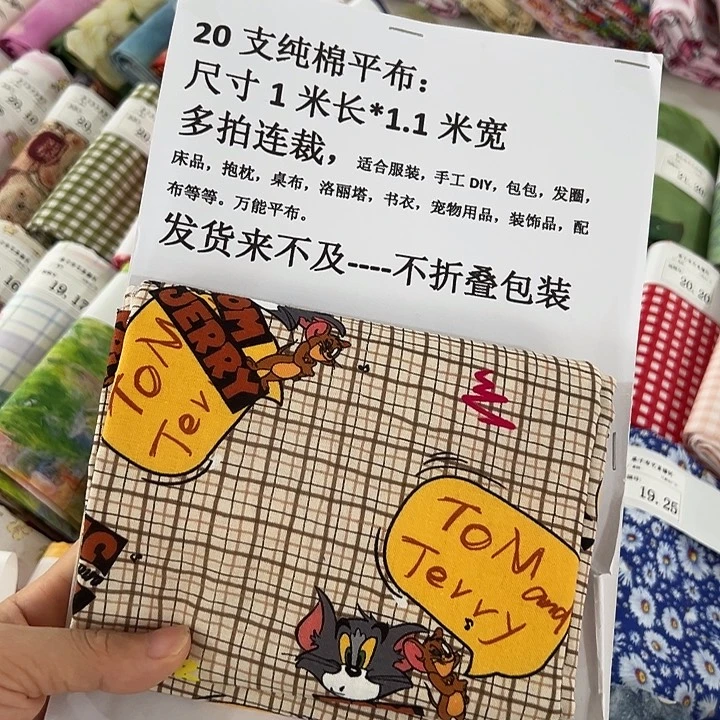 20 支纯棉平布：
尺寸 1 米长*1.1 米宽
多拍连裁，适合服装，手工 DIY，包包，发圈，
床品，抱枕，桌布，洛丽塔，书衣，宠物用品，装饰品，配
布等等。万能平布。
发货来不及----不折叠包装
TOM
JERRY
TOM
Jer
TOM
and
Jerry
19.17
20.20
19.25